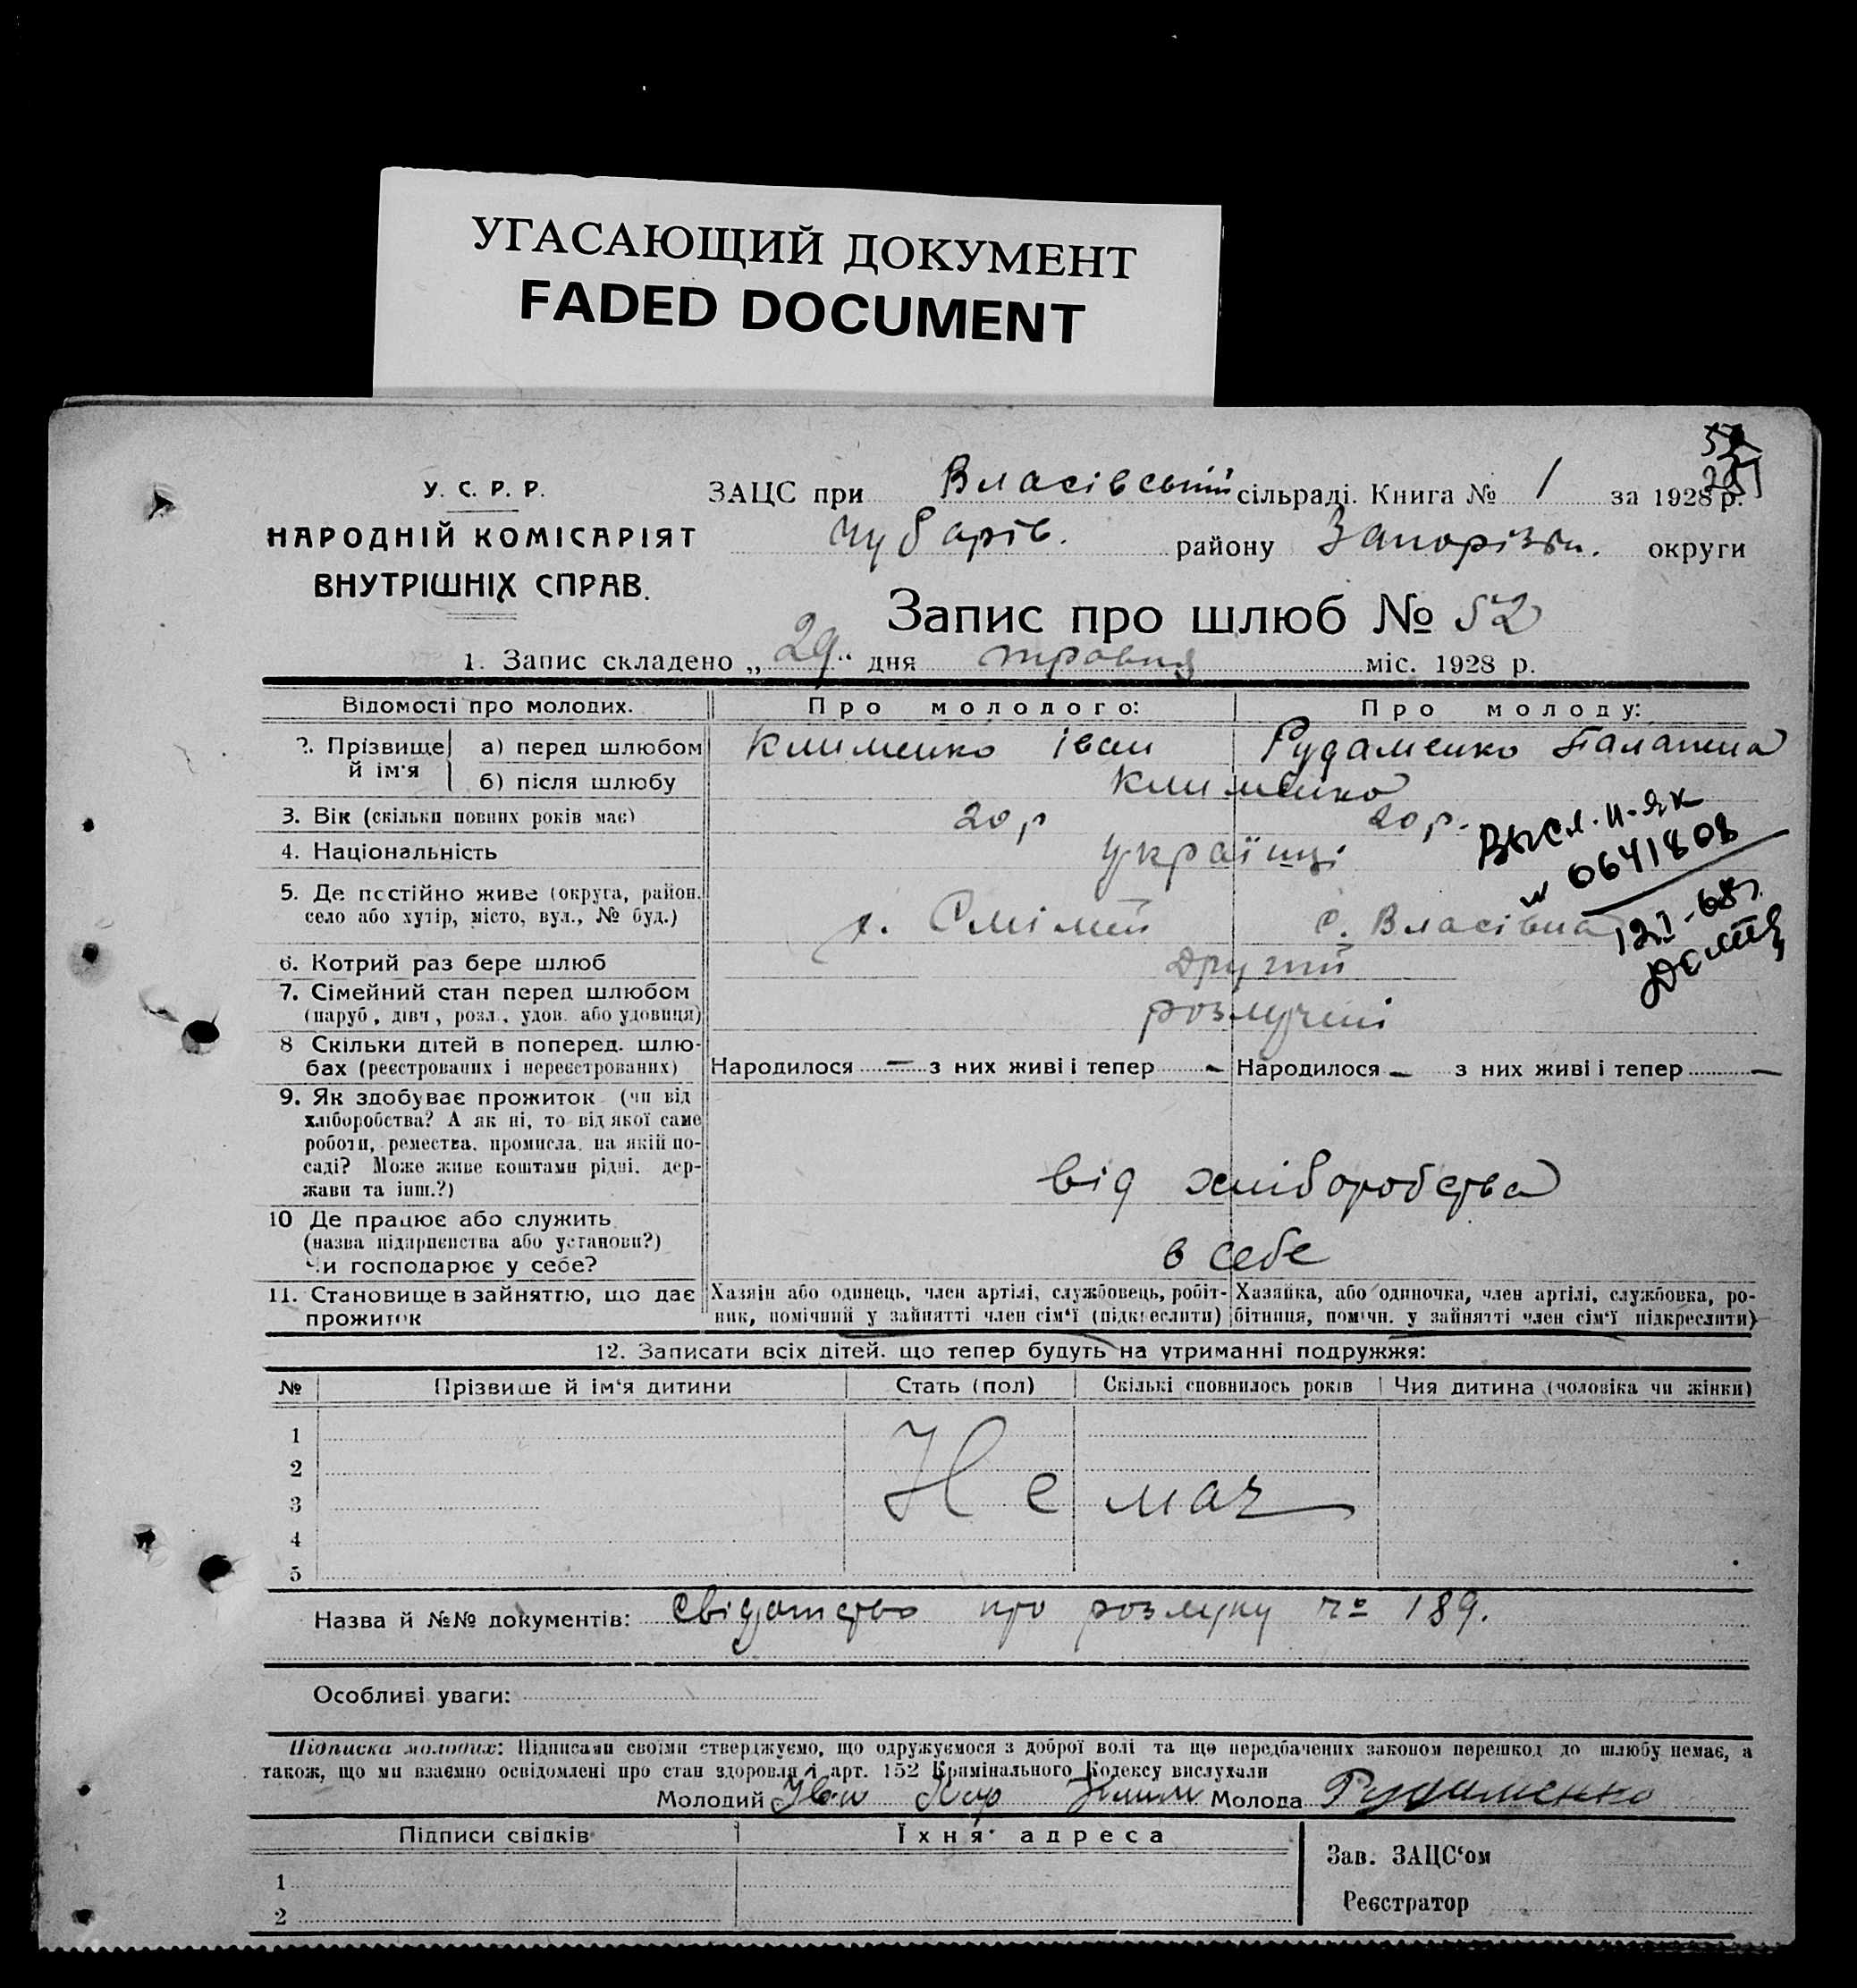 УГАСАЮЩИЙ ДОКУМЕНТ
FADED DOCUMENT
У. С. Р. Р.
НАРОДНІЙ КОМІСАРІЯТ
ВНУТРІШНІХ СПРАВ.
ЗАЦС при Власівській сільраді. Книга № 1 за 1928 р.
Чубарів. району Запорізьк. округи
Запис про шлюб № 52
1. Запис складено „29“ дня травня міс. 1928 р.
Відомості про молодих. Про молодого: Про молоду:
2. Прізвище й ім'я а) перед шлюбом Клименко Іван Рудаменко Палажка
б) після шлюбу Клименко
3. Вік (скільки повних років має) 20 р 20 р.
4. Національність українці
5. Де постійно живе (округа, район, село або хутір, місто, вул., № буд.) х. С. Власівка
6. Котрий раз бере шлюб другий
7. Сімейний стан перед шлюбом
(паруб., дівч., розл., удов. або удовиця) розлучені
8 Скільки дітей в поперед. шлю-
бах (реєстрованих і нереєстрованих) Народилося — з них живі і тепер — Народилося — з них живі і тепер —
9. Як здобуває прожиток (чи від
хліборобства? А як ні, то від якої саме
роботи, ремества, промисла, на якій по-
саді? Може живе коштами рідні, дер-
жави та інш.?) від хліборобства
10 Де працює або служить
(назва підприємства або установи?)
Чи господарює у себе? в себе
11. Становище в зайняттю, що дає
прожиток
Хазяін або одинець, член артілі, службовець, робіт-
ник, помічний у зайнятті член сім‘ї (підкреслити)
Хазяйка, або одиночка, член артілі, службовка, ро-
бітниця, помічн. у зайнятті член сім‘ї підкреслити)
Висл. п-як
0641808
12.I-68г.
12. Записати всіх дітей, що тепер будуть на утриманні подружжя:
№ Прізвище й ім‘я дитини Стать (пол) Скількі сповнилось років Чия дитина (чоловіка чи жінки)
1
2
3 Немає
4
5
Назва й №№ документів: Свідоцтво про розлуку № 189.
Особливі уваги:
Підписка молодих: Підписами своїми стверджуємо, що одружуємося з доброї волі та що передбачених законом перешкод до шлюбу немає, а
також, що ми взаємно освідомлені про стан здоровля і арт. 152 Кримінального Кодексу вислухали
Молодий Іван Молода Рудаменко
Підписи свідків Їхня адреса
1
2
Зав. ЗАЦС‘ом
Реєстратор